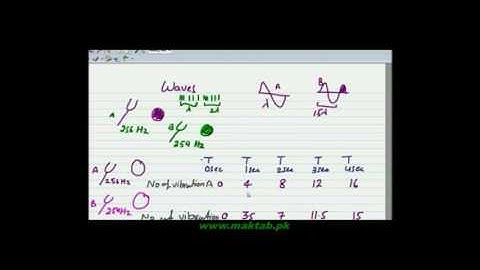 Waves
A
B
A
256 Hz
λ
2λ
B
254 Hz
λ
1.5λ
T T T T T
0sec 1sec 2sec 3sec 4sec
A
256 Hz
No of vibration A 0 4 8 12 16
B
254Hz
No of vibration 0 3.5 7 11.5 15
www.maktab.pk